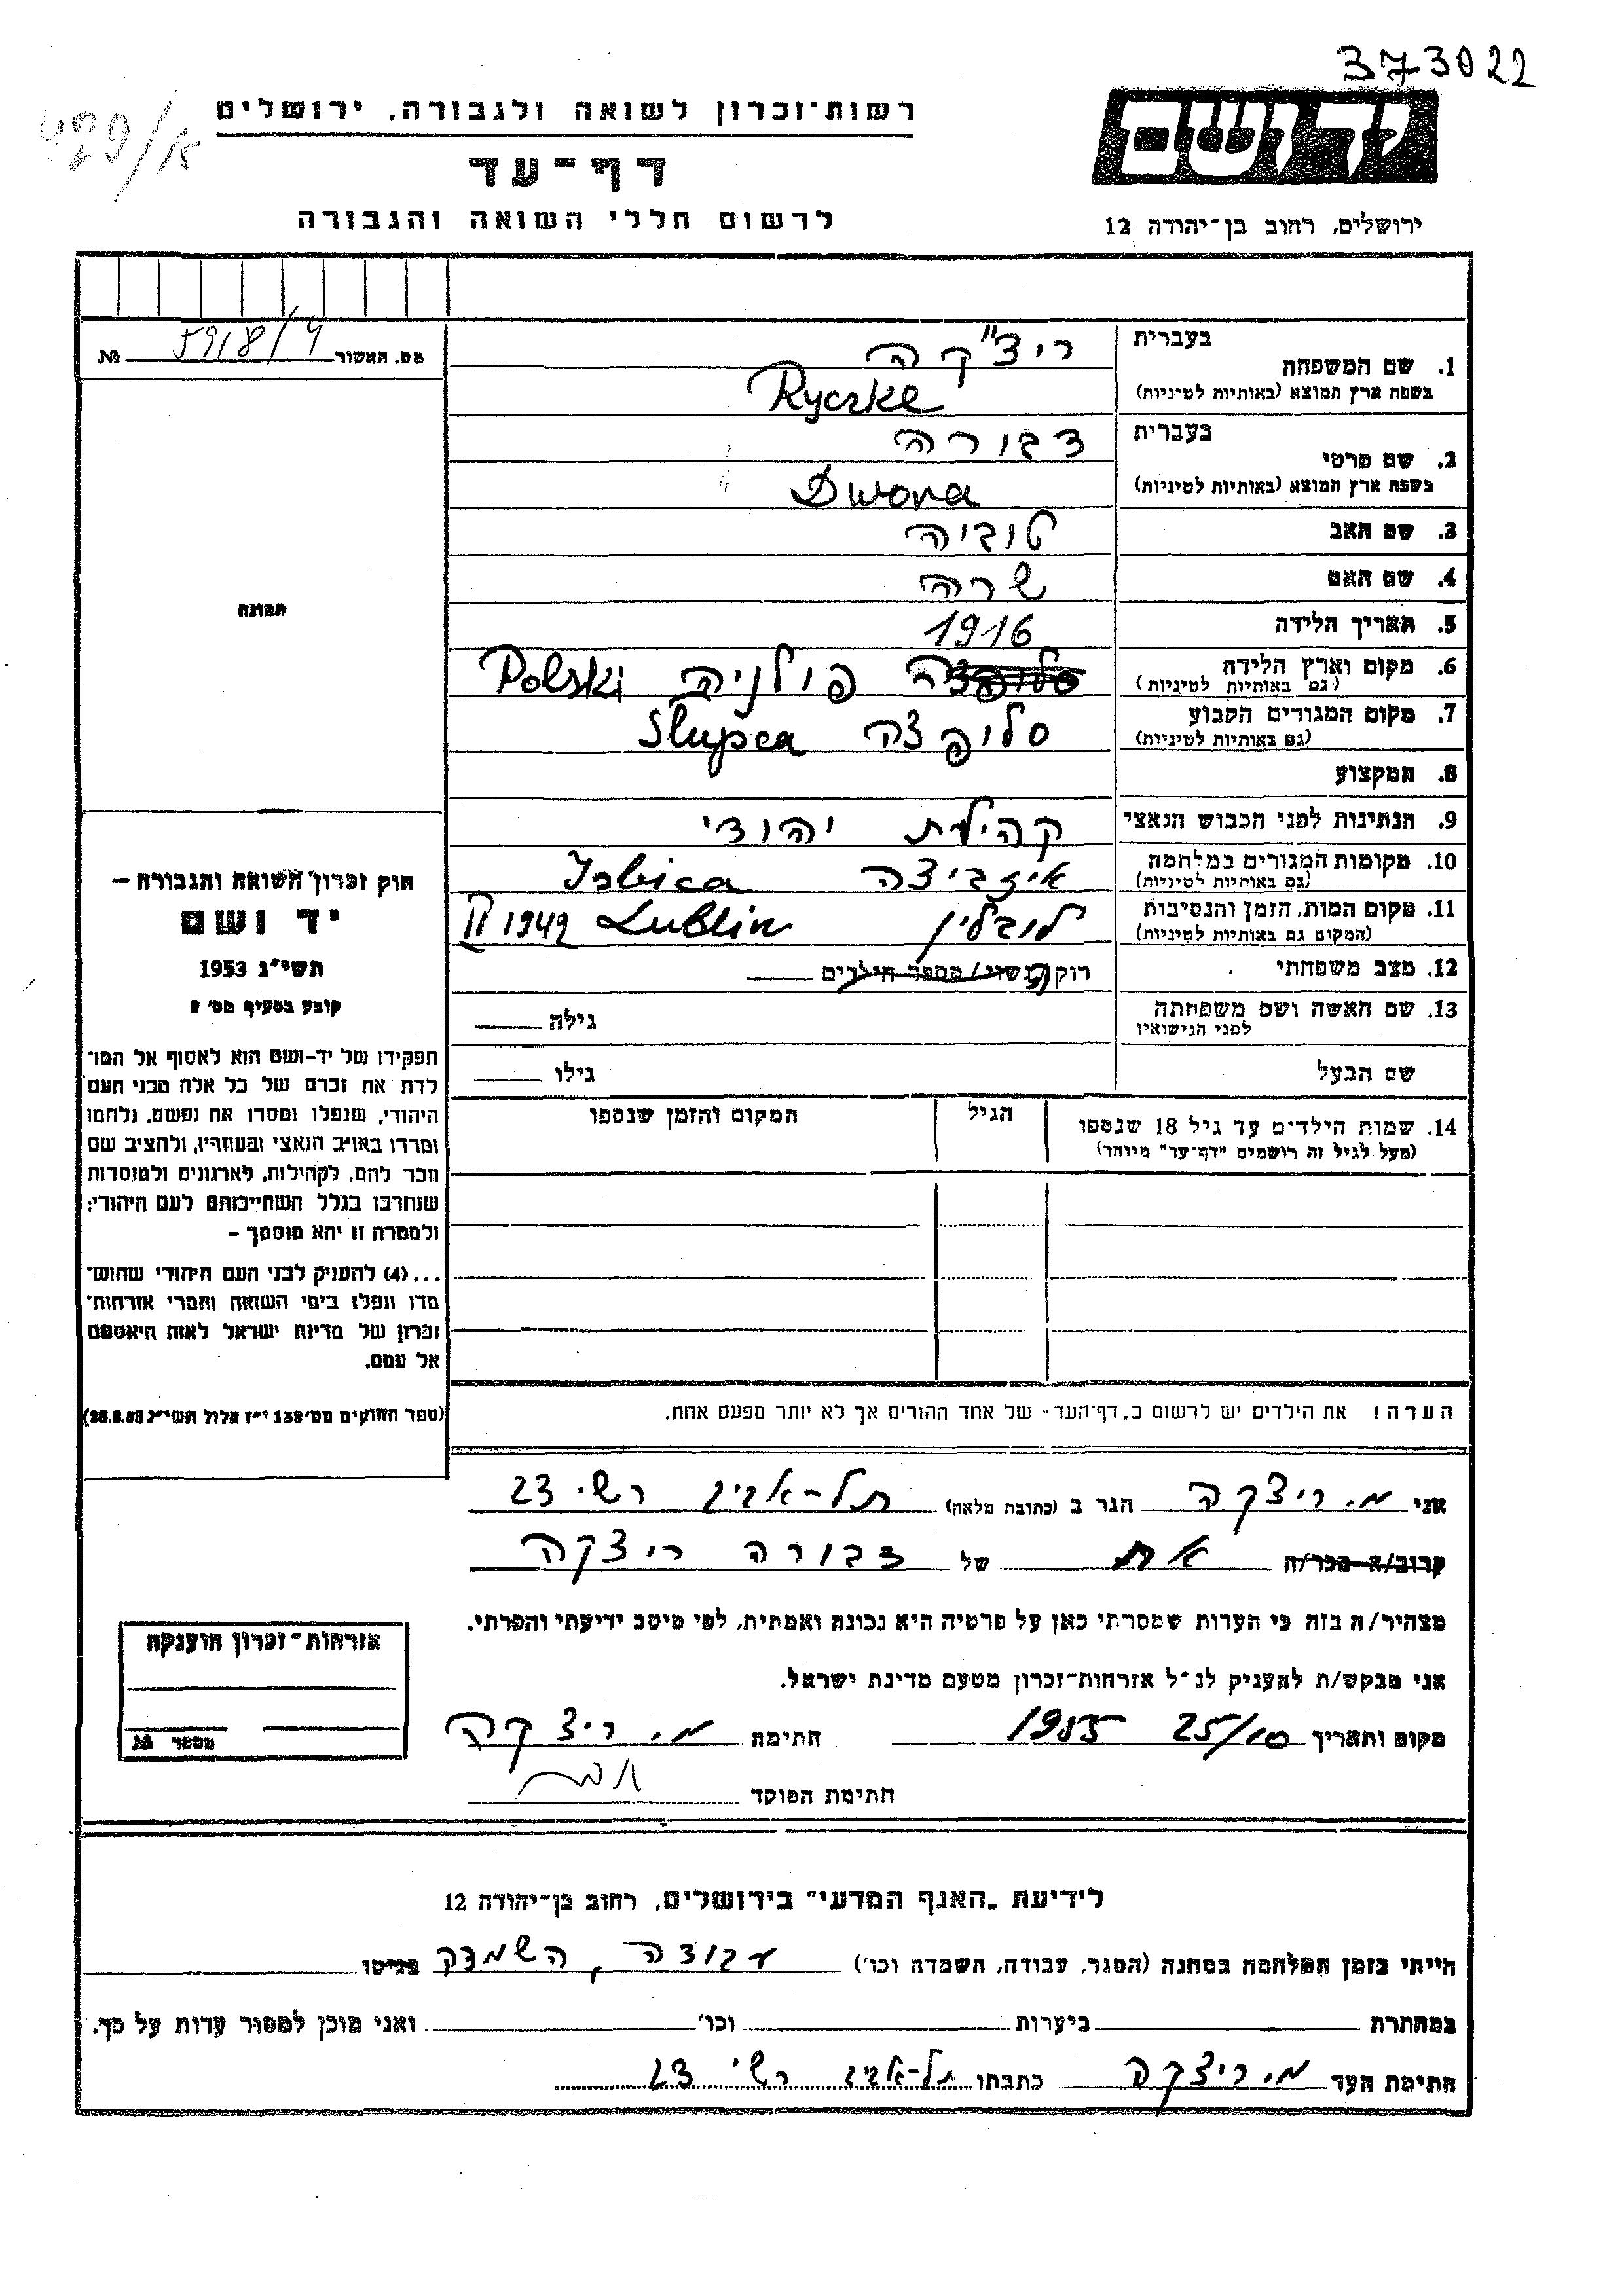 373022
429/א
רשות־זכרון לשואה ולגבורה, ירושלים
יד ושם
דף־עד
לרשום חללי השואה והגבורה
ירושלים, רחוב בן־יהודה 12
מס. האשור 5918/4 №
תמונה
חוק זכרון השואה והגבורה –
יד ושם
תשי״ג 1953
קובע בסעיף מס׳ 2
תפקידו של יד-ושם הוא לאסוף אל המו־
לדת את זכרם של כל אלה מבני העם
היהודי, שנפלו ומסרו את נפשם, נלחמו
ומרדו באויב הנאצי ובעוזריו, ולהציב שם
וזכר להם, לקהילות, לארגונים ולמוסדות
שנחרבו בגלל השתייכותם לעם היהודי;
ולמטרה זו יהא מוסמך –
...(4) להעניק לבני העם היהודי שהוש־
מדו ונפלו בימי השואה והמרי אזרחות־
זכרון של מדינת ישראל לאות היאספם
אל עמם.
(ספר החוקים מס׳ 132 י״ז אלול תשי״ג 28.8.53)
בעברית ריצ״קה
1. שם המשפחה
בשפת ארץ המוצא (באותיות לטיניות) Ryczke
בעברית דבורה
2. שם פרטי
בשפת ארץ המוצא (באותיות לטיניות) Dwora
3. שם האב טוביה
4. שם האם שרה
5. תאריך הלידה 1916
6. מקום וארץ הלידה סלופצה פולניה Polski
(גם באותיות לטיניות)
7. מקום המגורים הקבוע סלופצה Slupca
(גם באותיות לטיניות)
8. המקצוע
9. הנתינות לפני הכבוש הנאצי קהילת יהודי
10. מקומות המגורים במלחמה איזביצה Isbica
(גם באותיות לטיניות)
11. מקום המות, הזמן והנסיבות לובלין Lublin II 1942
(המקום גם באותיות לטיניות)
12. מצב משפחתי רוק/נשוי/מספר הילדים
13. שם האשה ושם משפחתה גילה
לפני הנישואין
שם הבעל גילו
14. שמות הילדים עד גיל 18 שנספו הגיל המקום והזמן שנספו
(מעל לגיל זה רושמים "דף־עד" מיוחד)
הערה: את הילדים יש לרשום ב„דף־העד״ של אחד ההורים אך לא יותר מפעם אחת.
אני מ. ריצקה הגר ב (כתובת מלאה) תל-אביב רש״י 23
קרוב/ה מכר/ה אח של דבורה ריצקה
מצהיר/ה בזה כי העדות שמסרתי כאן על פרטיה היא נכונה ואמתית, לפי מיטב ידיעתי והכרתי.
אני מבקש/ת להעניק לנ״ל אזרחות־זכרון מטעם מדינת ישראל.
מקום ותאריך 25/10 1955 חתימה מ. ריצקה
חתימת הפוקד
אזרחות־זכרון הוענקה
מספר №
לידיעת „האגף המדעי״ בירושלים, רחוב בן־יהודה 12
הייתי בזמן המלחמה במחנה (הסגר, עבודה, השמדה וכו׳) עבודה, השמדה בגיטו
במחתרת ביערות וכו׳ ואני מוכן למסור עדות על כך.
חתימת העד מ. ריצקה כתבתו תל-אביב רש״י 23